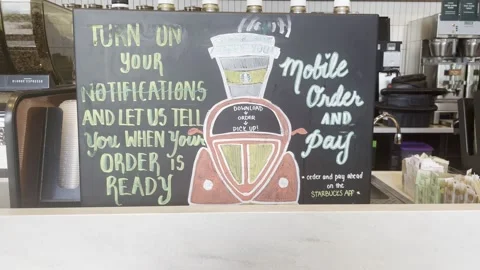 TURN ON
YOUR
NOTIFICATIONS
AND LET US TELL
YOU WHEN YOUR
ORDER is
READY
DOWNLOAD
+
ORDER
+
PICK UP!
Mobile
Order
AND
Pay
• order and pay ahead
on the
STARBUCKS APP •
BLONDE ESPRESSO